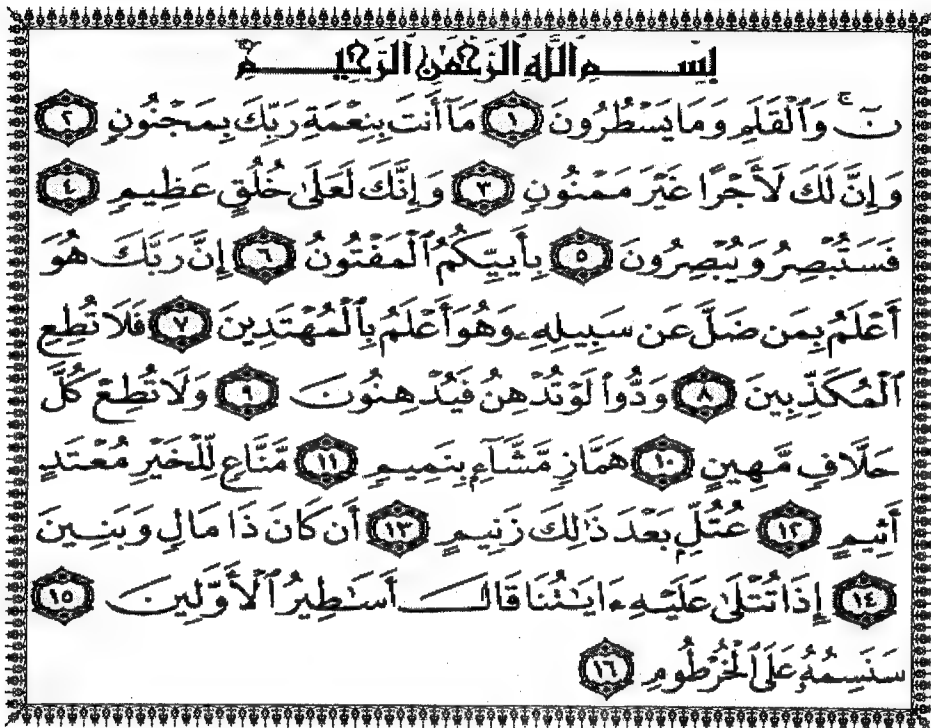 بِسْمِ ٱللَّهِ ٱلرَّحْمَٰنِ ٱلرَّحِيمِ
نٓ ۚ وَٱلْقَلَمِ وَمَا يَسْطُرُونَ ١ مَآ أَنتَ بِنِعْمَةِ رَبِّكَ بِمَجْنُونٍ ٢
وَإِنَّ لَكَ لَأَجْرًا غَيْرَ مَمْنُونٍ ٣ وَإِنَّكَ لَعَلَىٰ خُلُقٍ عَظِيمٍ ٤
فَسَتُبْصِرُ وَيُبْصِرُونَ ٥ بِأَييِّكُمُ ٱلْمَفْتُونُ ٦ إِنَّ رَبَّكَ هُوَ
أَعْلَمُ بِمَن ضَلَّ عَن سَبِيلِهِۦ وَهُوَ أَعْلَمُ بِٱلْمُهْتَدِينَ ٧ فَلَا تُطِعِ
ٱلْمُكَذِّبِينَ ٨ وَدُّوا۟ لَوْ تُدْهِنُ فَيُدْهِنُونَ ٩ وَلَا تُطِعْ كُلَّ
حَلَّافٍ مَّهِينٍ ١٠ هَمَّازٍ مَّشَّآءٍۭ بِنَمِيمٍ ١١ مَّنَّاعٍ لِّلْخَيْرِ مُعْتَدٍ
أَثِيمٍ ١٢ عُتُلٍّۭ بَعْدَ ذَٰلِكَ زَنِيمٍ ١٣ أَن كَانَ ذَا مَالٍ وَبَنِينَ
١٤ إِذَا تُتْلَىٰ عَلَيْهِ ءَايَٰتُنَا قَالَ أَسَٰطِيرُ ٱلْأَوَّلِينَ ١٥
سَنَسِمُهُۥ عَلَى ٱلْخُرْطُومِ ١٦